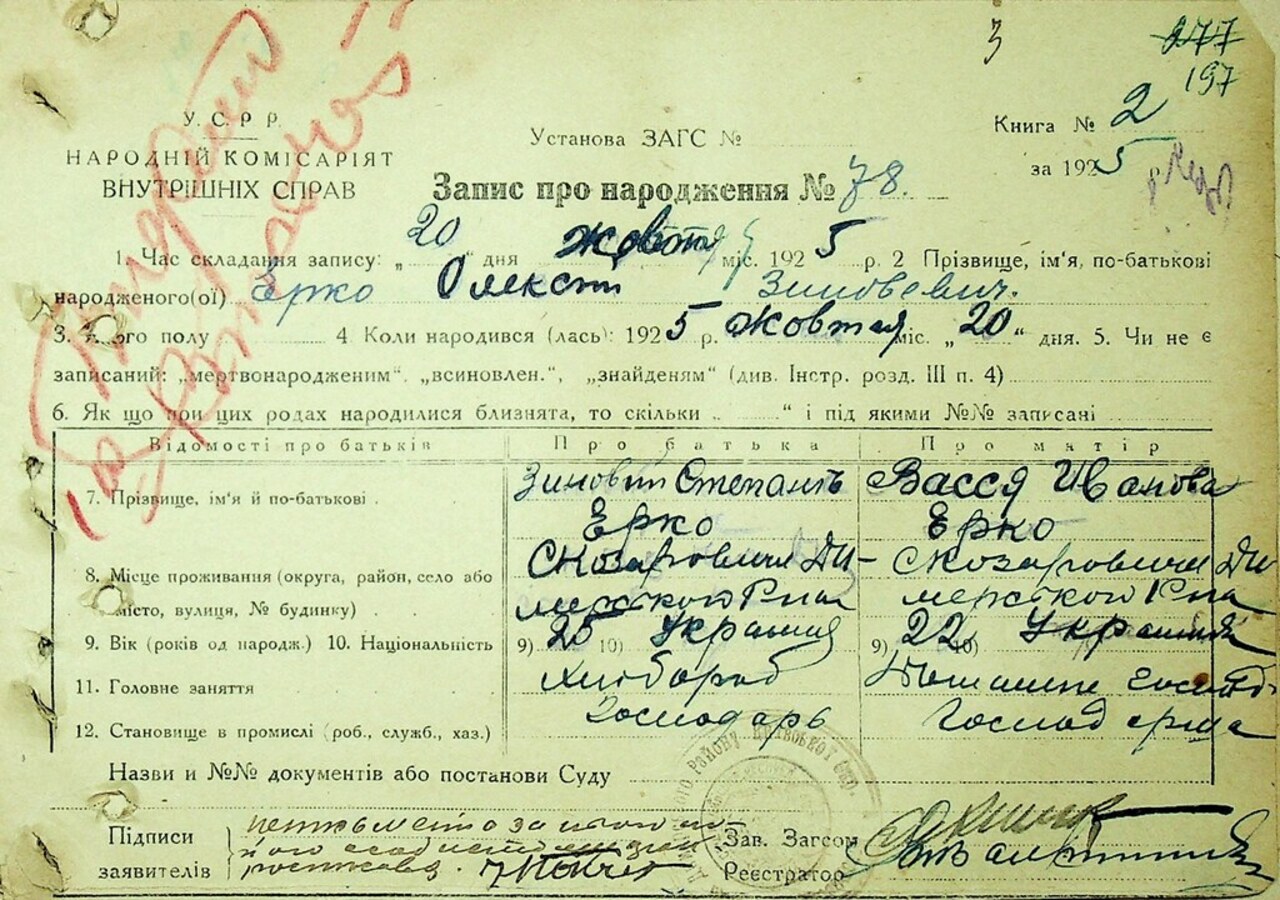 3 277
197
У.С.Р.Р.
НАРОДНІЙ КОМІСАРІЯТ
ВНУТРІШНІХ СПРАВ
Установа ЗАГС №
Книга № 2
за 1925 р.
Запис про народження № 78.
1. Час складання запису: „20“ дня жовтня міс. 1925 р. 2 Прізвище, ім'я, по-батькові
народженого(ої) Ерко Олексій Зиновьевич.
3. полу 4. Коли народився (лась): 1925 р. жовтня міс. „20“ дня. 5. Чи не є
записаний: „мертвонародженим“. „всиновлен.“, „знайденям“ (див. Інстр. розд. III п. 4)
6. Як що при цих родах народилися близнята, то скільки „ “ і під якими №№ записані
Відомості про батьків Про батька Про матір
7. Прізвище, ім'я й по-батькові Зиновій Степанів Васся Иванова
Ерко Ерко
8. Місце проживання (округа, район, село або Скозаровичи Ди- Скозаровичи Ди
місто, вулиця, № будинку) мерського Р-на мерського Р-на
9. Вік (років од народж.) 10. Національність 9) 25 10) 9) 22 10)
11. Головне заняття Хлібороб
12. Становище в промислі (роб., служб., хаз.) Господарь
Назви и №№ документів або постанови Суду
Підписи
заявителів
Зав. Загсом
Реєстратор